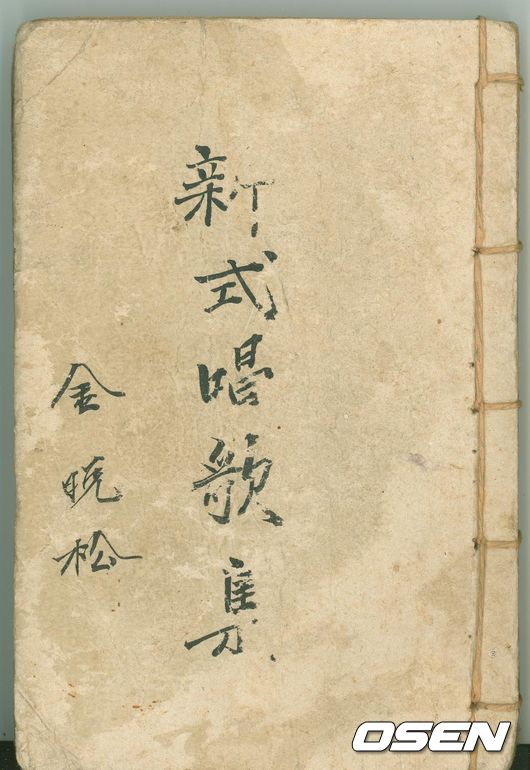 新式唱歌集
金晩松
OSEN